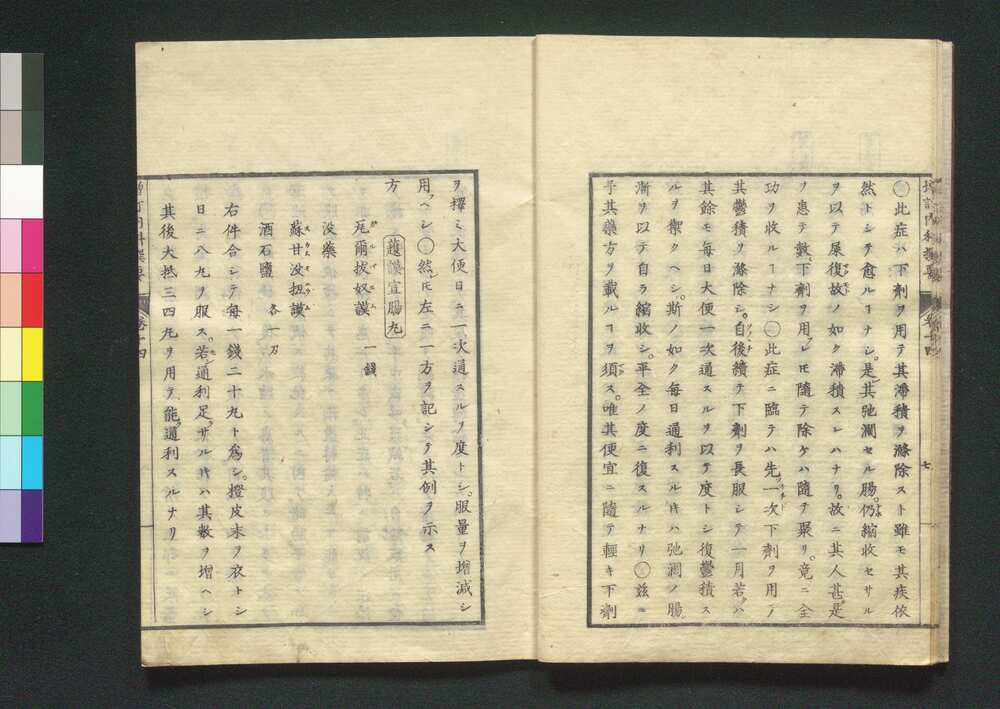 ◯此症ハ下劑ヲ用テ其滯積ヲ滌除スト雖モ其疾依
然トシテ愈ルヿナシ。是其弛瀾セル腸。仍縮收セサル
ヲ以テ屎復故ノ如ク滯積スレハナリ。故ニ其人甚是
ノ患テ數下劑ヲ用レㇳモ隨テ除ケハ隨テ聚リ。竟ニ全
功ヲ收ルヿナシ◯此症ニ臨テハ先一次下劑ヲ用ノ
其鬱積ヲ滌除シ。自後續テ下劑ヲ長服シテ一月若ハ
其餘モ每日大便一次通スルヲ以テ度トシ復鬱積ス
ルヲ禦クヘシ。斯ノ如ク每日通利スル片ハ弛瀾ノ腸
漸ヲ以テ自ラ縮收シ。平全ノ度ニ復スルナリ◯茲ニ
予其藥方ヲ載ルヿヲ須ス。唯其便宜ニ隨テ輕キ下劑
ヲ擇ミ大便日ニ一次通スルヲ度トシ。服量ヲ增減シ
用フヘシ◯然㆑ㇳモ左ニ一方ヲ記シテ其例ヲ示ス
方 蘆薈宣腸丸
瓦爾拔奴謨 一錢
沒藥
蘇甘沒扭謨
酒石鹽 各一刃
右件合シテ每一錢二十丸ト爲シ。橙皮末ヲ衣トシ
日ニ八九ヲ服ス。若通利足ラサル片ハ其數ヲ增ヘシ
其後大抵三四丸ヲ用テ能通利スルナリ
卷十四
七
卷十四